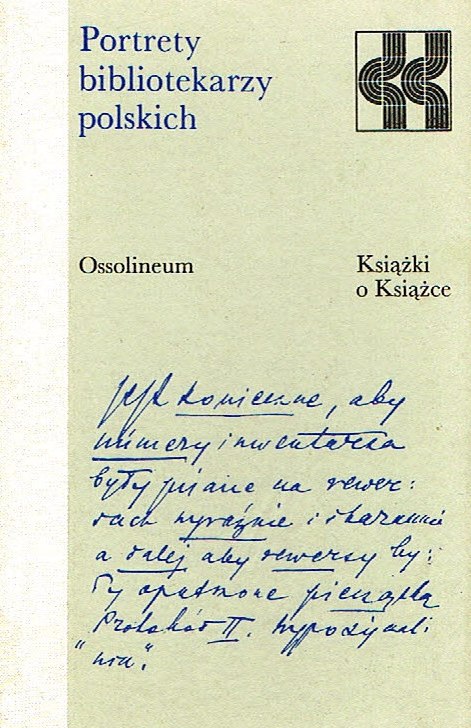 Portrety
bibliotekarzy
polskich
Ossolineum
Książki
o Książce
jest konieczne, aby
numery inwentarza
były pisane na rewer:
sach wyraźnie i starannie
a dalej aby rewersy by:
ły opatrzone pieczątką
Protokół II. Wypożyczal:
"nia".